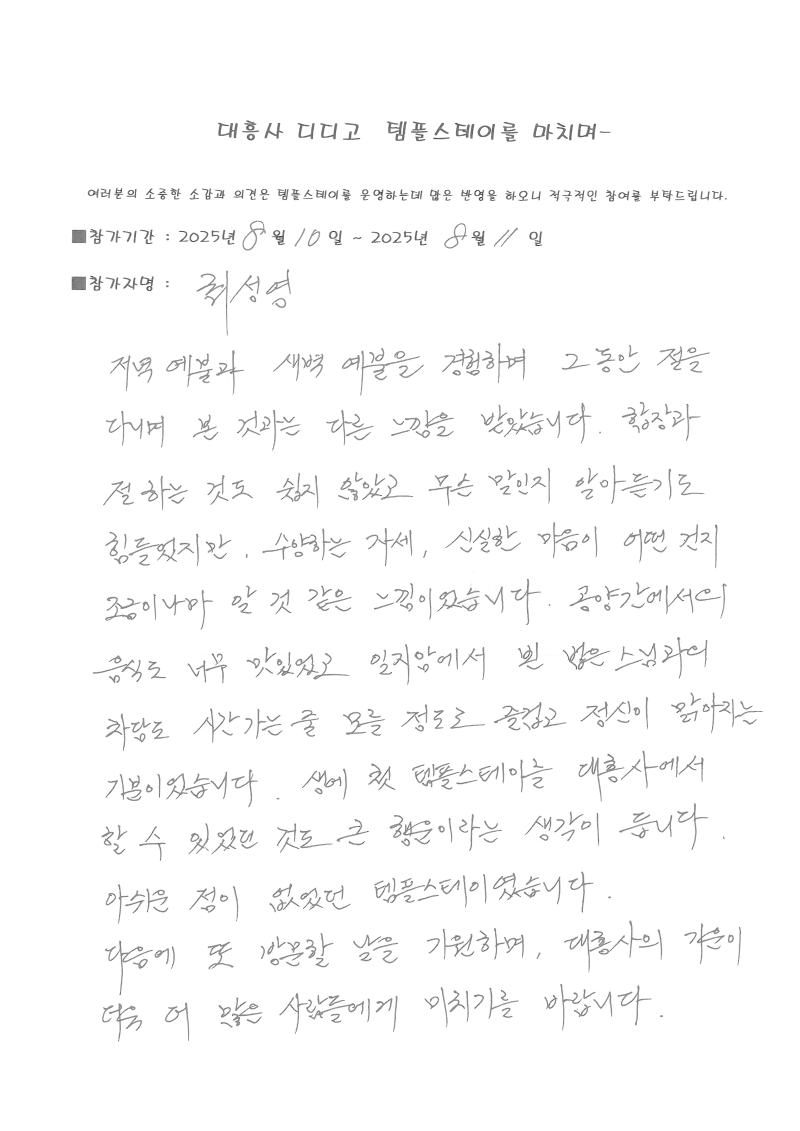 대흥사 디디고 템플스테이를 마치며-
여러분의 소중한 소감과 의견은 템플스테이를 운영하는데 많은 반영을 하오니 적극적인 참여를 부탁드립니다.
■참가기간 : 2025년 8월 10일 ~ 2025년 8월 11일
■참가자명 : 최성영
저녁 예불과 새벽 예불을 경험하며 그동안 절을
다니며 본 것과는 다른 느낌을 받았습니다. 합장과
절하는 것도 쉽지 않았고 무슨 말인지 알아듣기도
힘들었지만, 수양하는 자세, 신실한 마음이 어떤 건지
조금이나마 알 것 같은 느낌이었습니다. 공양간에서의
음식도 너무 맛있었고 일지암에서 뵌 법은스님과의
차담도 시간가는 줄 모를 정도로 즐겁고 정신이 맑아지는
기분이었습니다. 생에 첫 템플스테이를 대흥사에서
할 수 있었던 것도 큰 행운이라는 생각이 듭니다.
아쉬운 점이 없었던 템플스테이였습니다.
다음에 또 방문할 날을 기원하며, 대흥사의 기운이
더욱 더 많은 사람들에게 미치기를 바랍니다.